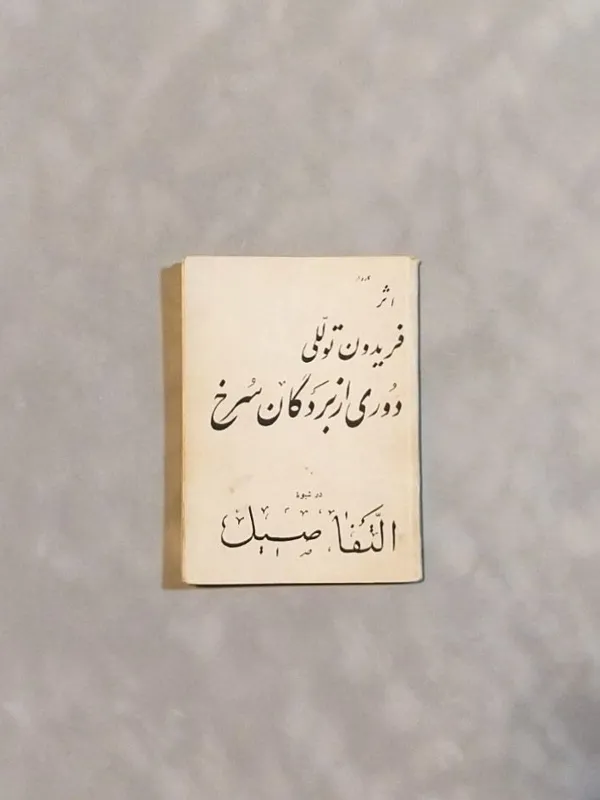 اثر
فریدون تولّلی
دُوری از بَردَگان سُرخ
در شیوهٔ
التَّفاصیل